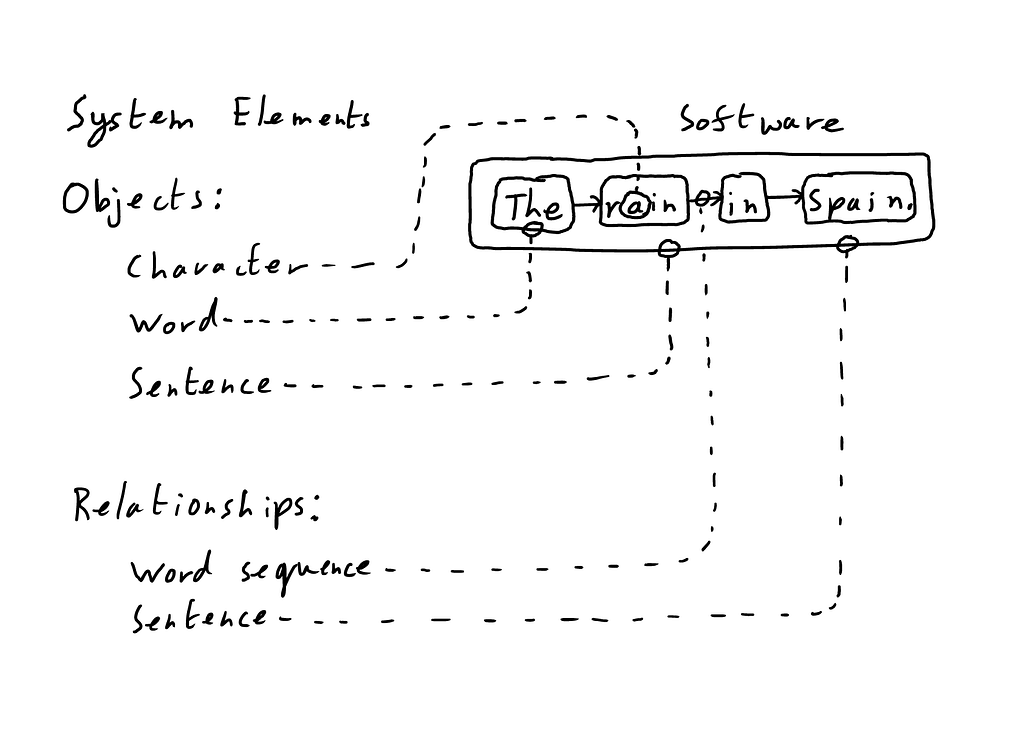 System Elements
Software
The rain in Spain.
Objects:
Character
Word
Sentence
Relationships:
Word sequence
Sentence